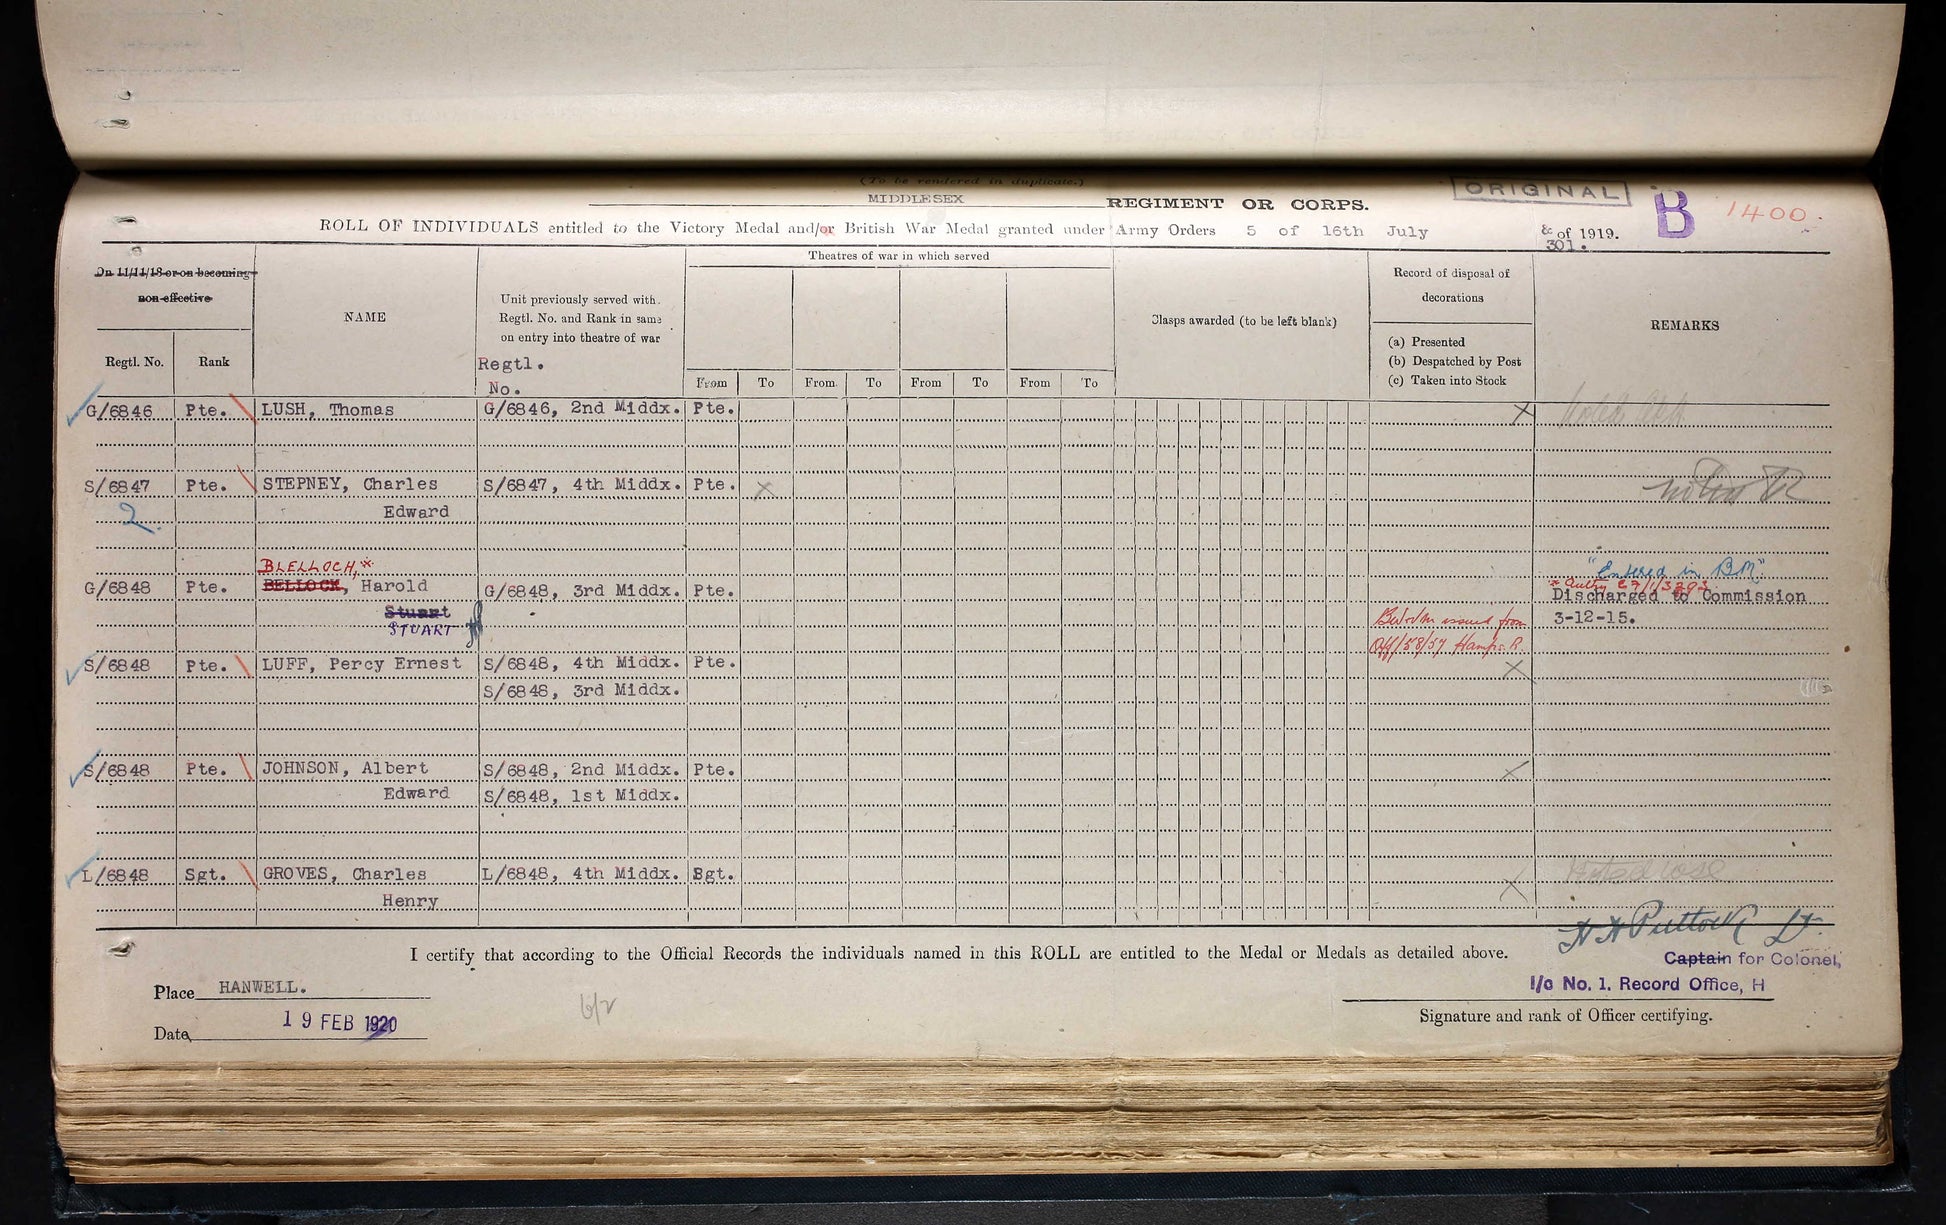 (To be rendered in duplicate.)
ORIGINAL
B 1400.
MIDDLESEX REGIMENT OR CORPS.
ROLL OF INDIVIDUALS entitled to the Victory Medal and/or British War Medal granted under Army Orders 5 of 16th July & of 1919.
301.
On 11/11/18 or on becoming
non-effective
Regtl. No. Rank
NAME
Unit previously served with.
Regtl. No. and Rank in same
on entry into theatre of war
Regtl.
No.
Theatres of war in which served
From To From To From To From To
Clasps awarded (to be left blank)
Record of disposal of
decorations
(a) Presented
(b) Despatched by Post
(c) Taken into Stock
REMARKS
G/6846 Pte. LUSH, Thomas G/6846, 2nd Middx. Pte. X
S/6847 Pte. STEPNEY, Charles S/6847, 4th Middx. Pte. X
2 Edward
BLELLOCH,* "Entered in BM"
G/6848 Pte. BELLOCK, Harold G/6848, 3rd Middx. Pte. Discharged to Commission
Stuart 3-12-15.
STUART
BW&VM issued from
Off/58/57 Hamps. R.
S/6848 Pte. LUFF, Percy Ernest S/6848, 4th Middx. Pte. X
S/6848, 3rd Middx.
S/6848 Pte. JOHNSON, Albert S/6848, 2nd Middx. Pte. X
Edward S/6848, 1st Middx.
L/6848 Sgt. GROVES, Charles L/6848, 4th Middx. Sgt. X
Henry
H H Puttock Lt.
I certify that according to the Official Records the individuals named in this ROLL are entitled to the Medal or Medals as detailed above.
Captain for Colonel,
I/c No. 1. Record Office, H
Signature and rank of Officer certifying.
Place HANWELL.
Date 19 FEB 1920